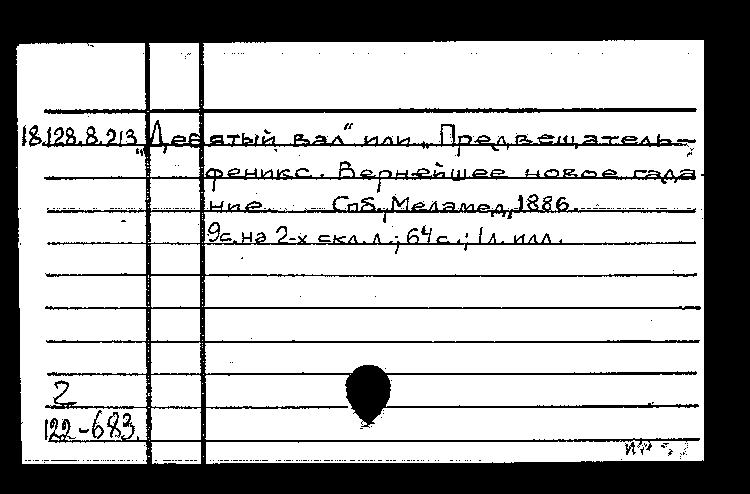 18.128.8.213 „Девятый вал“ или „Предвещатель-
феникс. Вернейшее новое гада-
ние. Спб., Меламед, 1886.
9с. на 2-х скл. л.; 64 с.; 1 л. илл.
2
122-683.